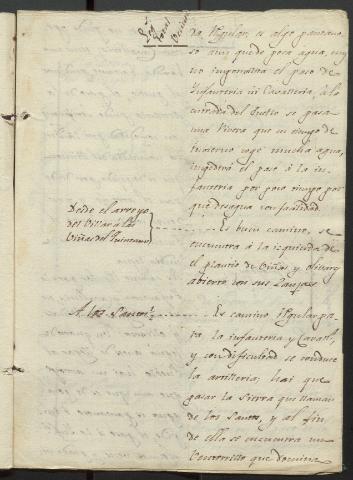 da Regular, es algo pantanoso
so aun que de poca agua,
no imposibilita el paso de
Infanteria ni Cavalleria, à la
entrada del Pueblo se pasa
una Rivera que en tiempo de
invierno coge mucha agua,
impedirá el paso à la in-
fanteria por poco tiempo por
que desagua con facilidad.
Desde el arroyo
del Villar à las
Viñas del Quintano
Es buen camino, se
encuentra à la izquierda
el plantio de Viñas y olivar
abierto con sus Zanjas
A los Santos
Es camino Regular pa-
ra la infanteria y Cavall.ª,
y con dificultad se conduce
la artilleria, hai que
pasar la Sierra que llaman
de los Santos, y al fin
de ella se encuentra un
que domina